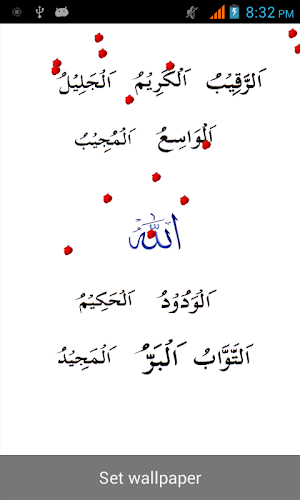 8:32 PM
اَلرَّقِيْبُ اَلْكَرِيْمُ اَلْجَلِيْلُ
اَلْوَاسِعُ اَلْمُجِيْبُ
اللّٰه
اَلْوَدُوْدُ اَلْحَكِيْمُ
اَلتَّوَّابُ اَلْبَرُّ اَلْمَجِيْدُ
Set wallpaper